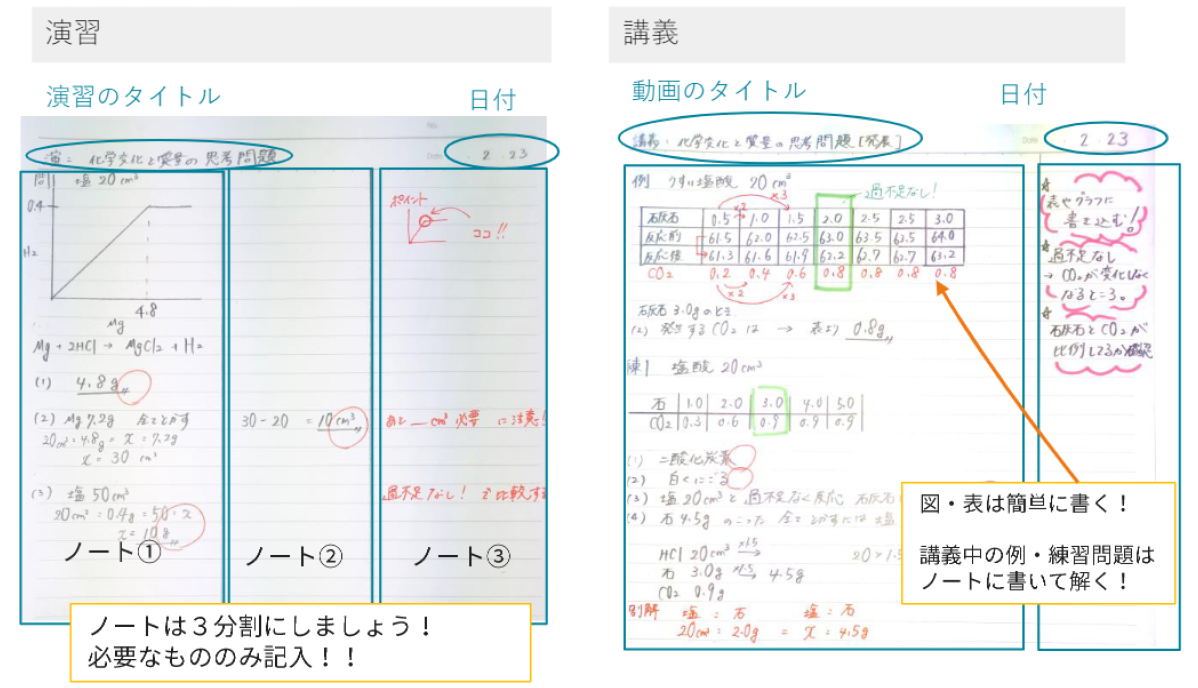 演習
演習のタイトル
日付
演: 化学変化と質量の思考問題
2.23
問1 塩 20cm³
0.4
H₂
4.8
Mg
Mg + 2HCl → MgCl₂ + H₂
(1) 4.8g
(2) Mg 7.2g 全てとかす
20cm³:4.8g = x:7.2g
x = 30 cm³
(3) 塩 50cm³
20cm³:0.4g = 50:x
x = 10g
ノート①
30 - 20 = 10cm³
ノート②
ポイント
ココ!!
あと _ cm³ 必要 に注意!
過不足なし! で比較する
ノート③
ノートは3分割にしましょう!
必要なもののみ記入!!
講義
動画のタイトル
日付
講義: 化学変化と質量の思考問題[発展]
2.23
例 うすい塩酸 20cm³
過不足なし!
×2 ×3
石灰石 0.5 1.0 1.5 2.0 2.5 2.5 3.0
反応前 61.5 62.0 62.5 63.0 63.5 63.5 64.0
反応後 61.3 61.6 61.9 62.2 62.7 62.7 63.2
CO₂ 0.2 0.4 0.6 0.8 0.8 0.8 0.8
×2 ×3
石灰石 3.0gのとき
(2) 発生する CO₂ は → 表より 0.8g
練1 塩酸 20cm³
石 1.0 2.0 3.0 4.0 5.0
CO₂ 0.3 0.6 0.9 0.9 0.9
(1) 二酸化炭素
(2) 白くにごる
(3) 塩 20cm³ と 過不足なく反応 石灰石
(4) 石 4.5g のこった 全てとかすには 塩
HCl 20cm³ ×1.5 20×1.5
石 3.0g ×1.5 4.5g
CO₂ 0.9g
別解 塩:石 塩:石
20cm³:2.0g = x:4.5g
表やグラフに
書き込む!
過不足なし
→ CO₂が変化しなく
なるところ。
石灰石とCO₂が
比例してるか確認
図・表は簡単に書く!
講義中の例・練習問題は
ノートに書いて解く!